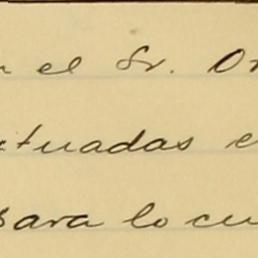 el Sr. Or
tuadas e
para lo cu